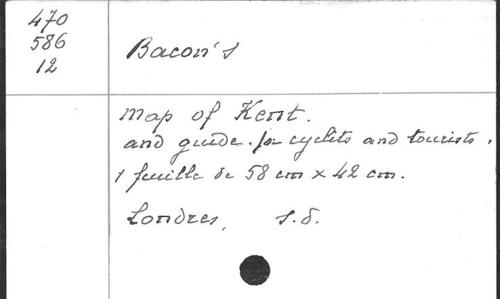 470
586
12
Bacon's
map of Kent.
and guide. for cyclits and tourists.
1 feuille de 58 cm x 42 cm.
Londres, s.d.